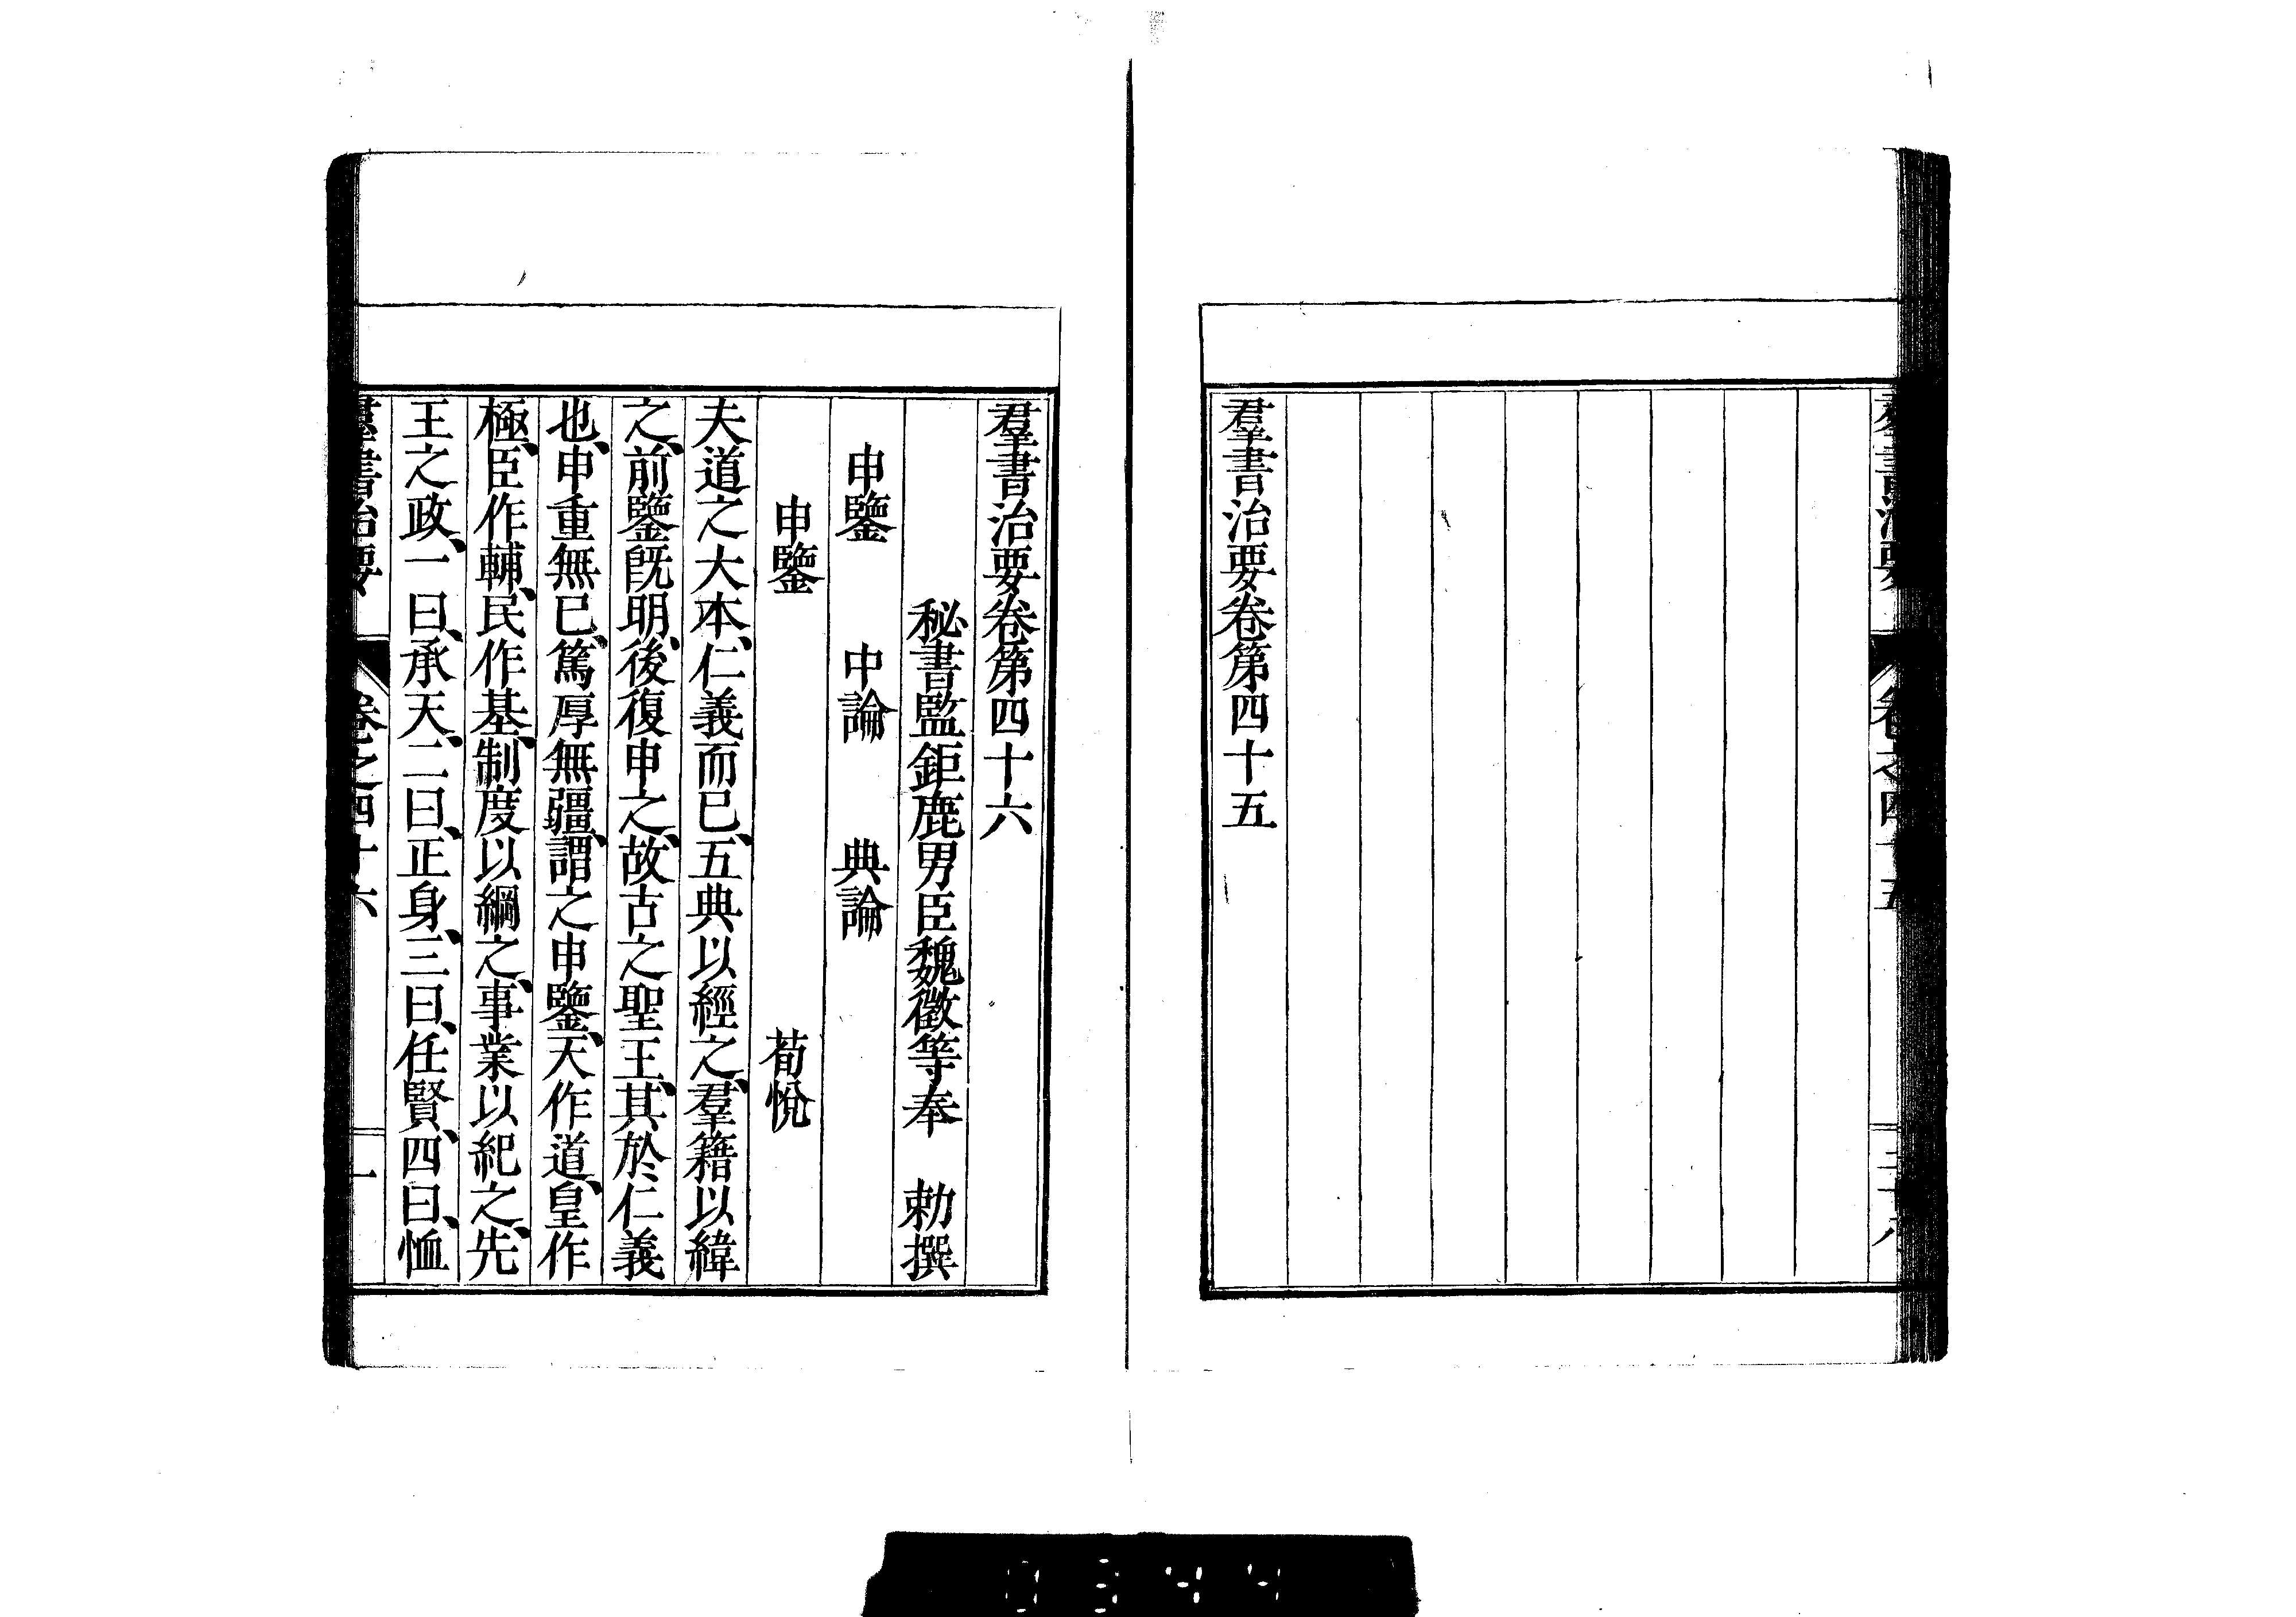 羣書治要卷第四十五
羣書治要卷第四十六
秘書監鉅鹿男臣魏徵等奉　勅撰
申鑒　中論　典論
申鑒　荀悅
夫道之大本、仁義而已、五典以經之、羣籍以緯
之、前鑒既明、後復申之、故古之聖王、其於仁義
也、申重無已、篤厚無疆、謂之申鑒、天作道、皇作
極、臣作輔、民作基、制度以綱之、事業以紀之、先
王之政、一曰、承天、二曰、正身、三曰、任賢、四曰、恤
羣書治要　卷之四十六　一
0344